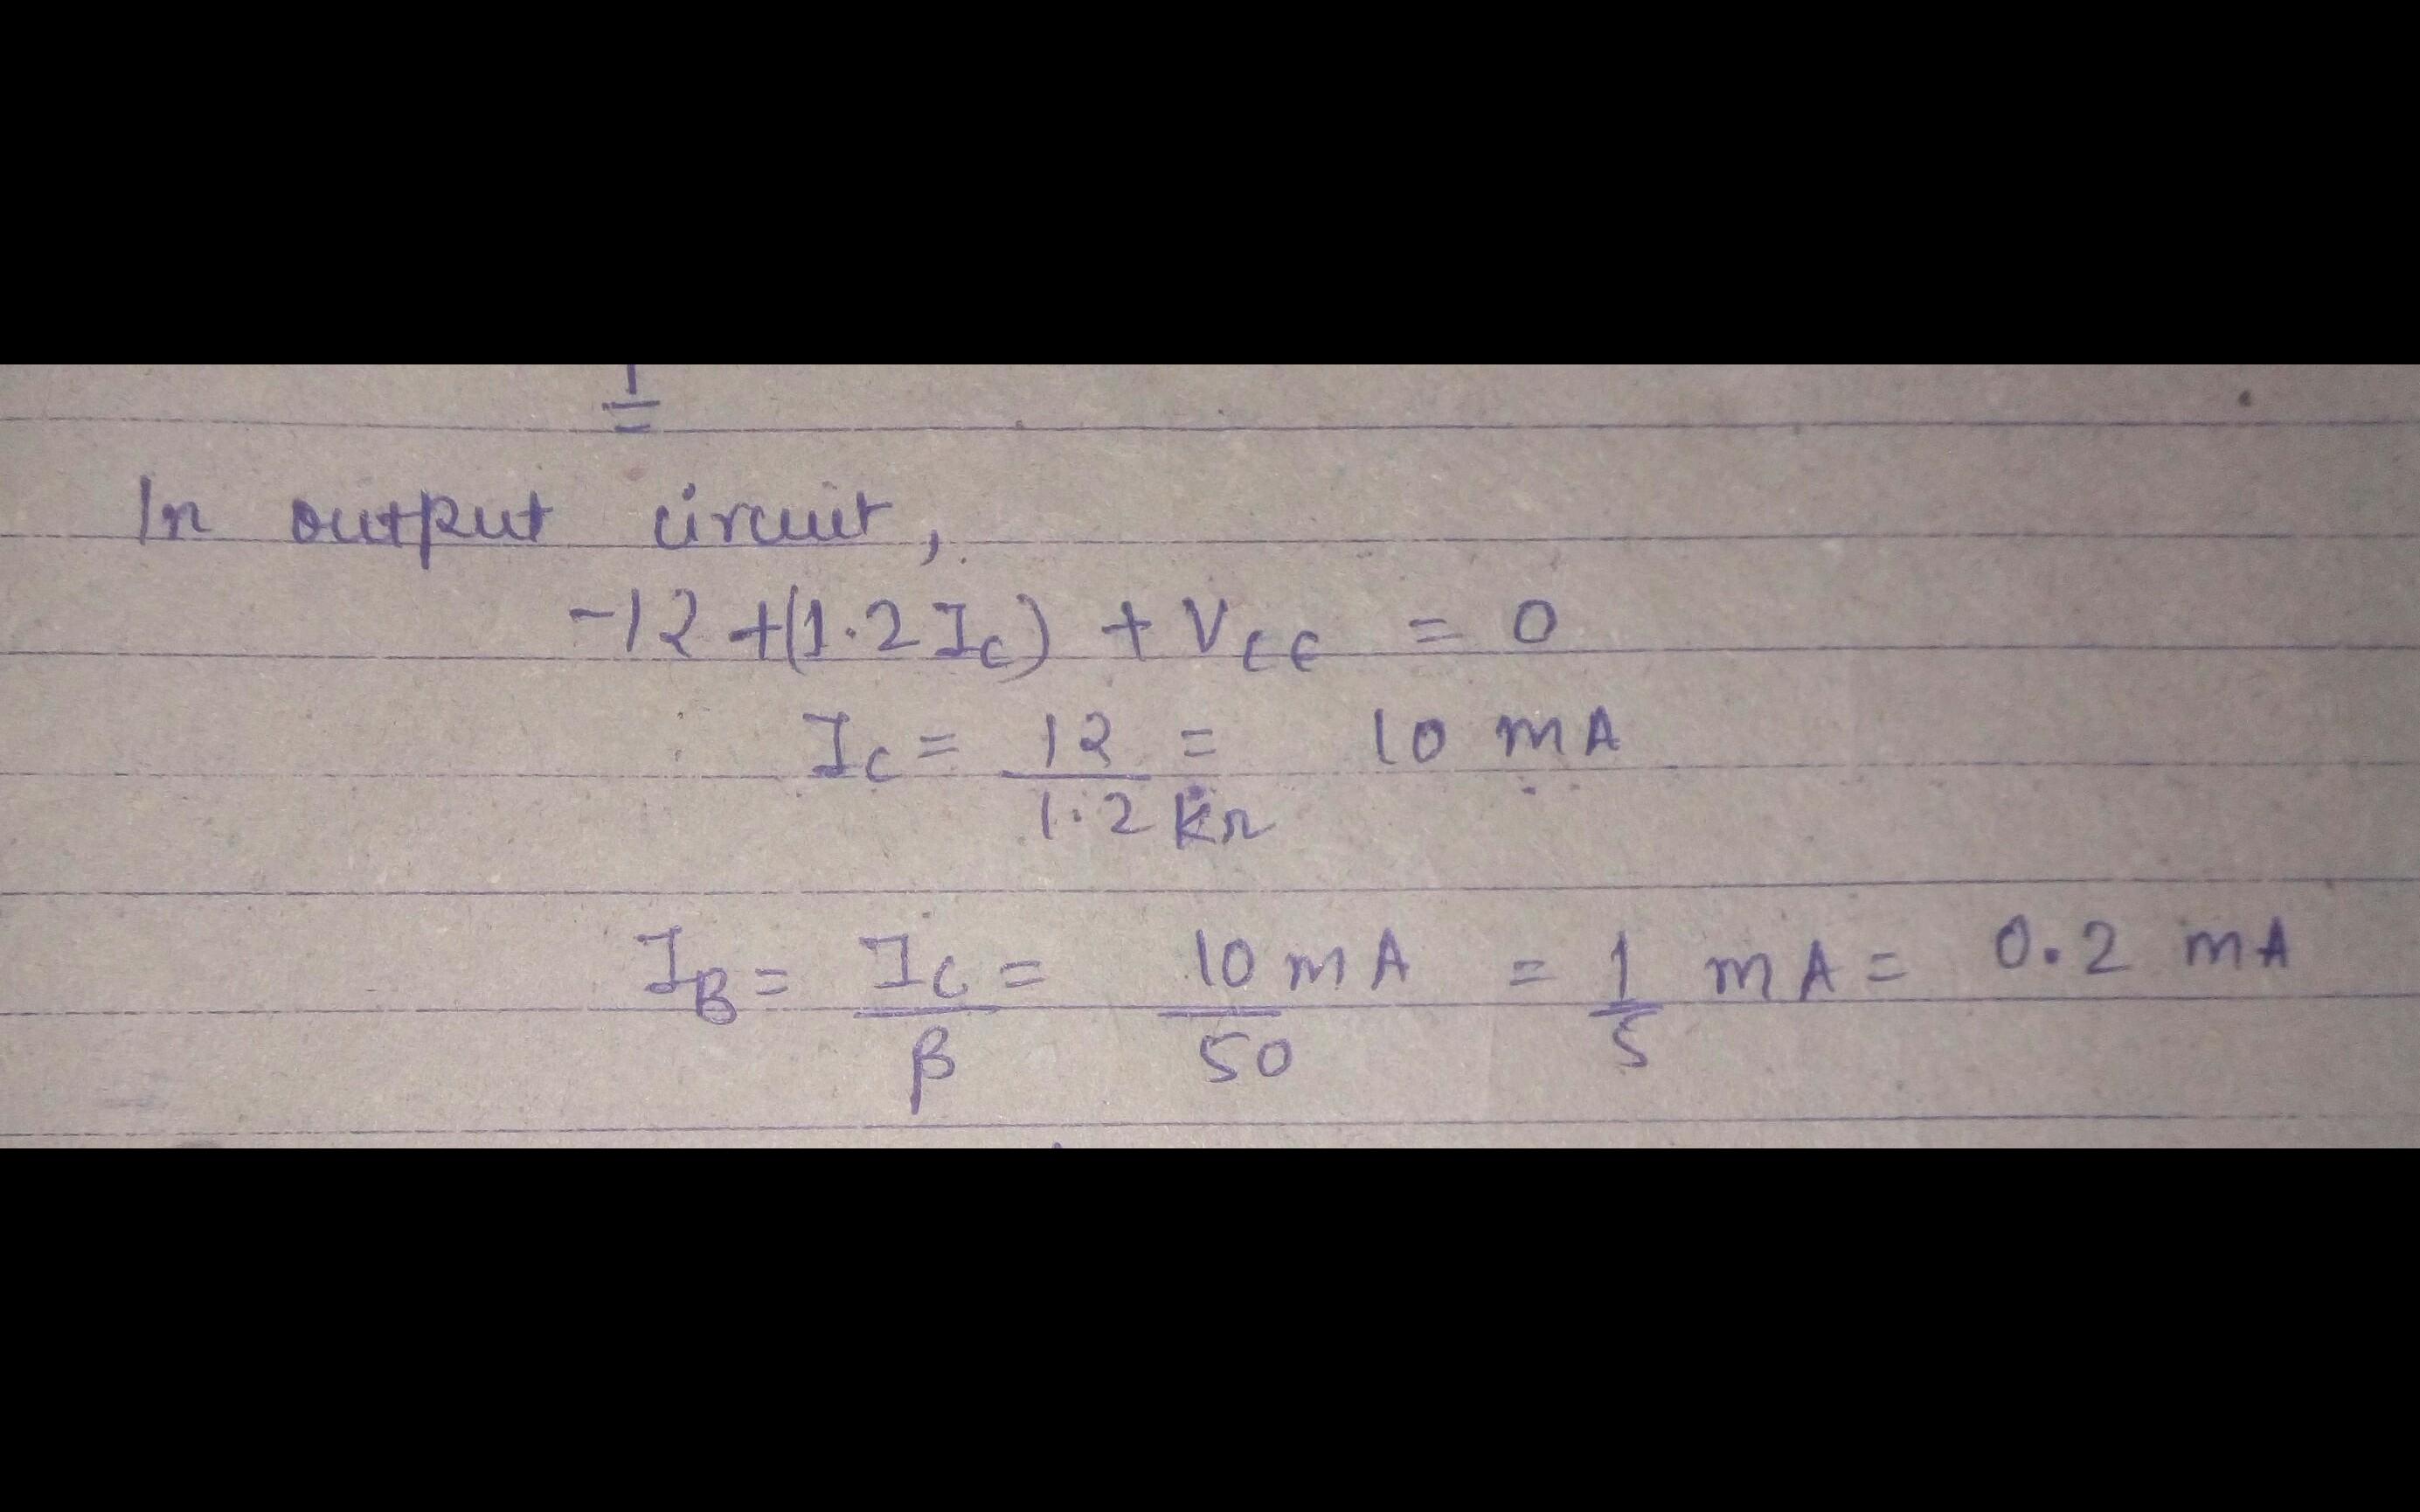 In output circuit,
-12 + (1.2 Ic) + VCE = 0
Ic = 12 / 1.2 kΩ = 10 mA
IB = Ic / β = 10 mA / 50 = 1 / 5 mA = 0.2 mA